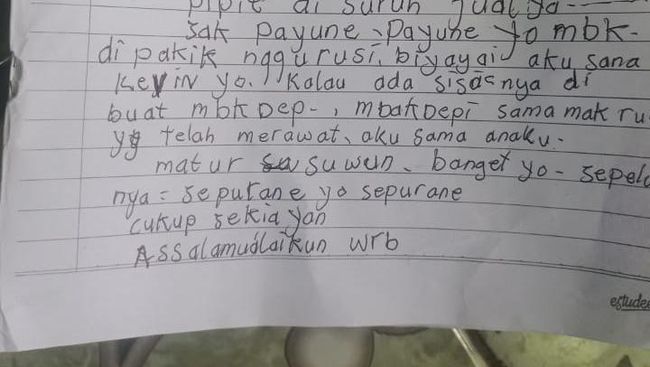 pipit di suruh jual ya
sak payune, payune yo mbk-
di pakik nggurusi, biyayai aku sana
Kevin yo. Kalau ada sisasnya di
buat mbkDep-, mbakDepi sama mak ru
yg telah merawat, aku sama anaku.
matur suwun, banget yo - sepel
nya = sepurane yo sepurane
cukup sekia yan
Assalamualaikun wrb
estude